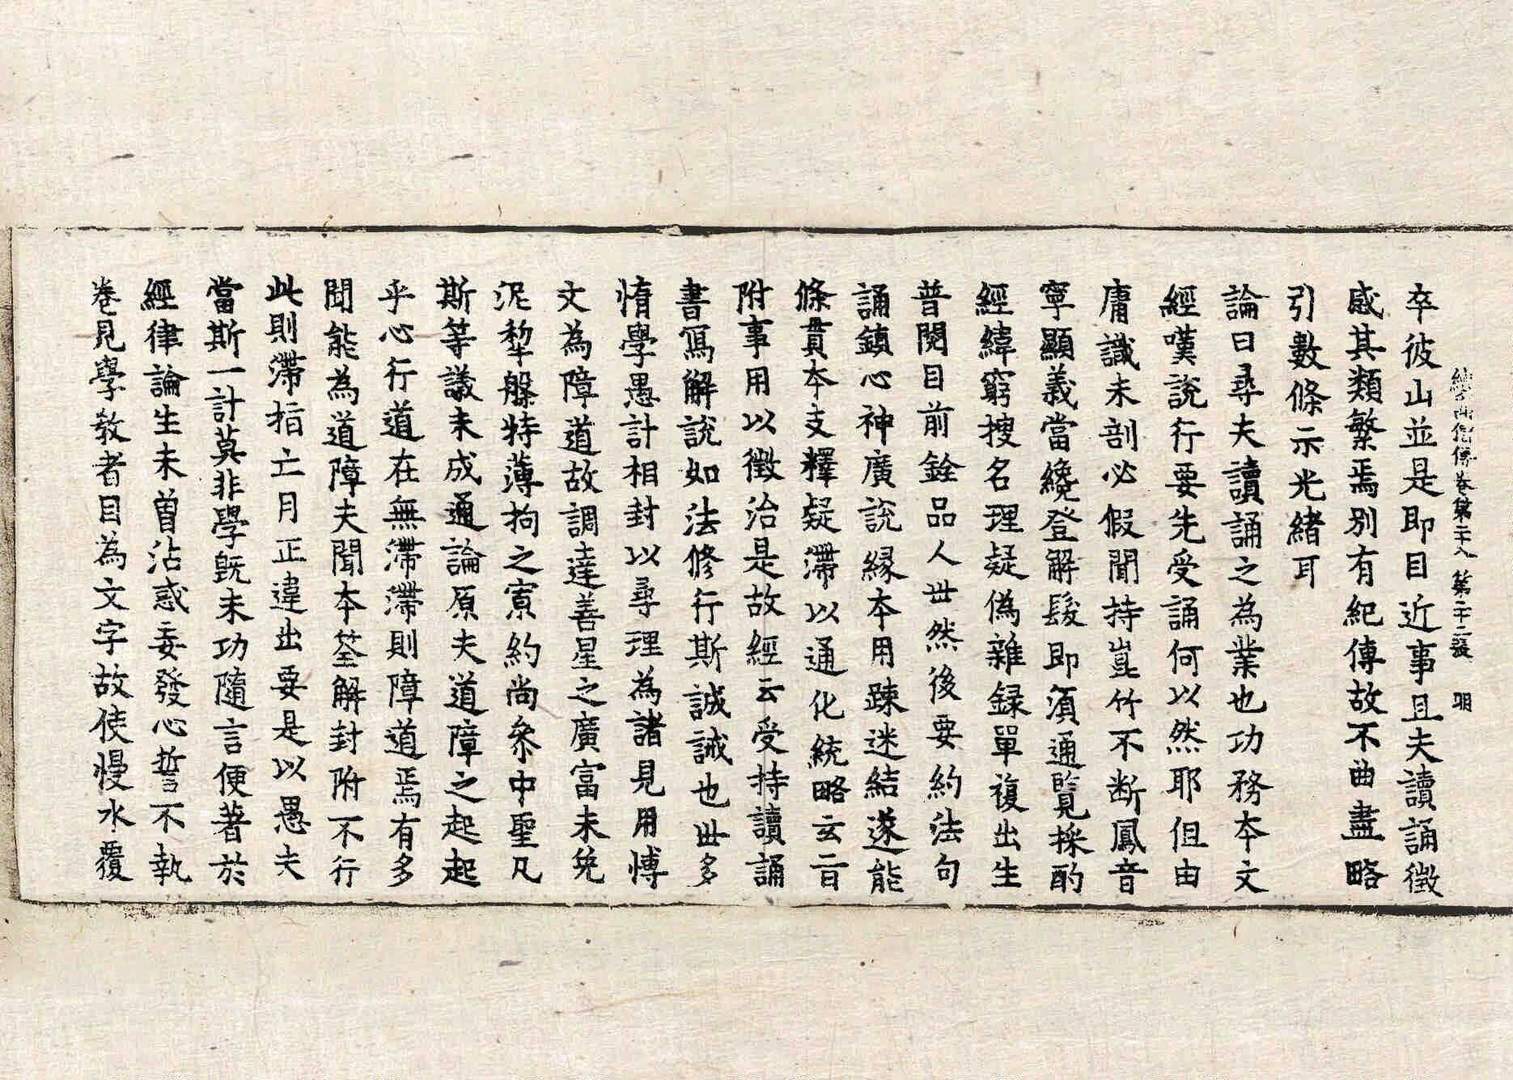 續高僧傳卷第二十八 第二十二張 明
卒彼山並是即目近事且夫讀誦徵
感其類繁焉別有紀傳故不曲盡略
引數條示光緒耳
論曰尋夫讀誦之為業也功務本文
經嘆說行要先受誦何以然耶但由
庸識未剖必假聞持崑竹不断鳳音
寧顯義當纔登解髮即須通覽採酌
經緯窮搜名理疑偽雜録單複出生
普閱目前銓品人世然後要約法句
誦鎮心神廣說緣本用踈迷結遂能
條貫本支釋疑滯以通化統略玄旨
附事用以徵治是故經云受持讀誦
書寫解說如法修行斯誠誡也世多
惰學愚計相封以尋理為諸見用博
文為障道故調達善星之廣富未免
泥犂槃特薄拘之寡約尚參中聖凡
斯等議未成通論原夫道障之起起
乎心行道在無滯滯則障道焉有多
聞能為道障夫聞本筌解封附不行
此則滯指亡月正違出要是以愚夫
當斯一計莫非學既未功隨言便著於
經律論生未曾沾惑妄發心誓言不執
卷見學教者目為文字故使慢水覆